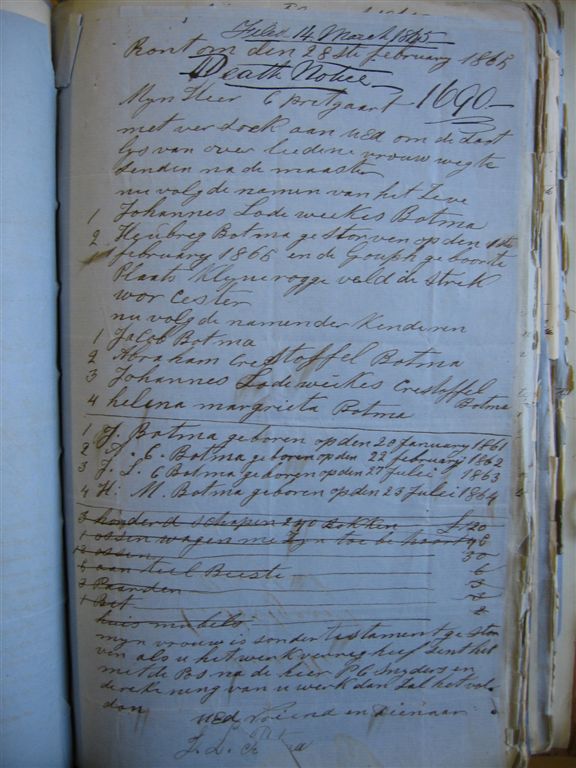 Filed 14 March 1865
Rontom den 28ste february 1865
Death Notice
Myn Heer C Britzaart 1690
met ver soek aan UEd om de
lys van over ledene vrouw weg te
senden na de maaster
nu volg de namen van het
1 Johannes Lode weekes Botma
2 Botma gestorven op den 1ste
february 1865 en de Gouph geboorte
Plaats Klyne rogge veld distrik
wor cester
nu volg de namen der Kenderen
1 Jacob Botma
2 Abraham Cre Stoffel Botma
3 Johannes Lode weikes Crestoffel Botma
4 helena margrieta Botma
1 J. Botma geboren op den 29 January 1861
2 A. C. Botma geboren op den 22 february 1862
3 J. L. C Botma geboren op den 27 Julei 1863
4 H. M. Botma geboren op den 25 Julei 1864
3 honderd schapen 240 bokken £ 20
1 ossen wagen met zyn toe be hoort 45
12 ossen 30
6 aan teel Beeste 6
3 Paarden 3
1 Bet
huis mebels 2
myn vrouw is sonder testament gestor
ven als u het werk verreg heef sent het
met de Bs na de heer P C Snyders en
de reke ning van u werk dan Zal het vol
doen
UEd vriend en dienaar
J. L.